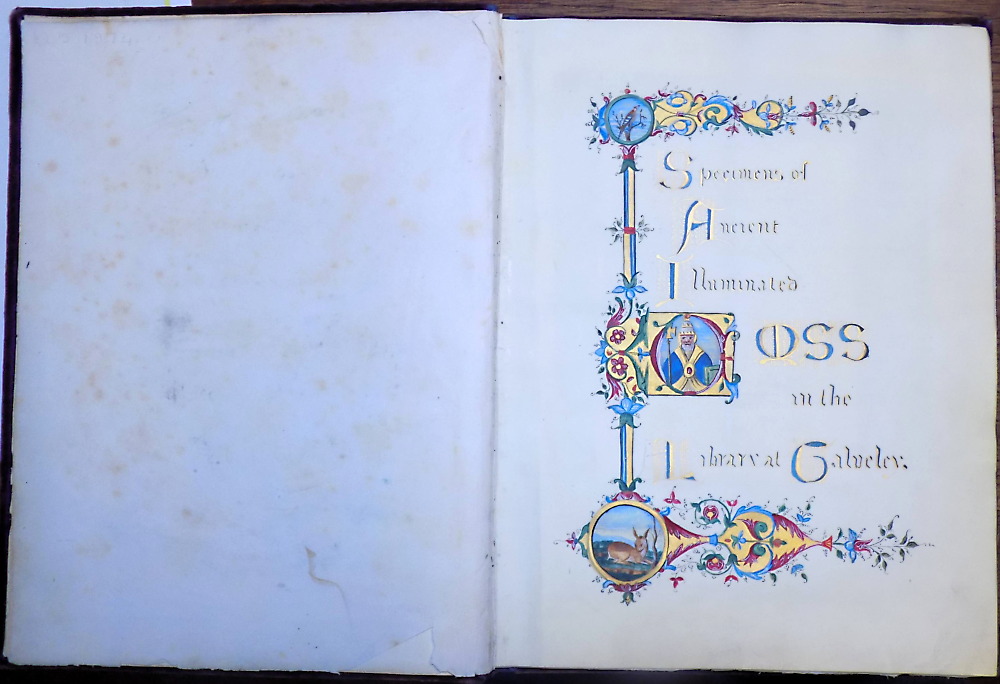 Specimens of
Ancient
Illuminated
MSS
in the
Library at Galveley.